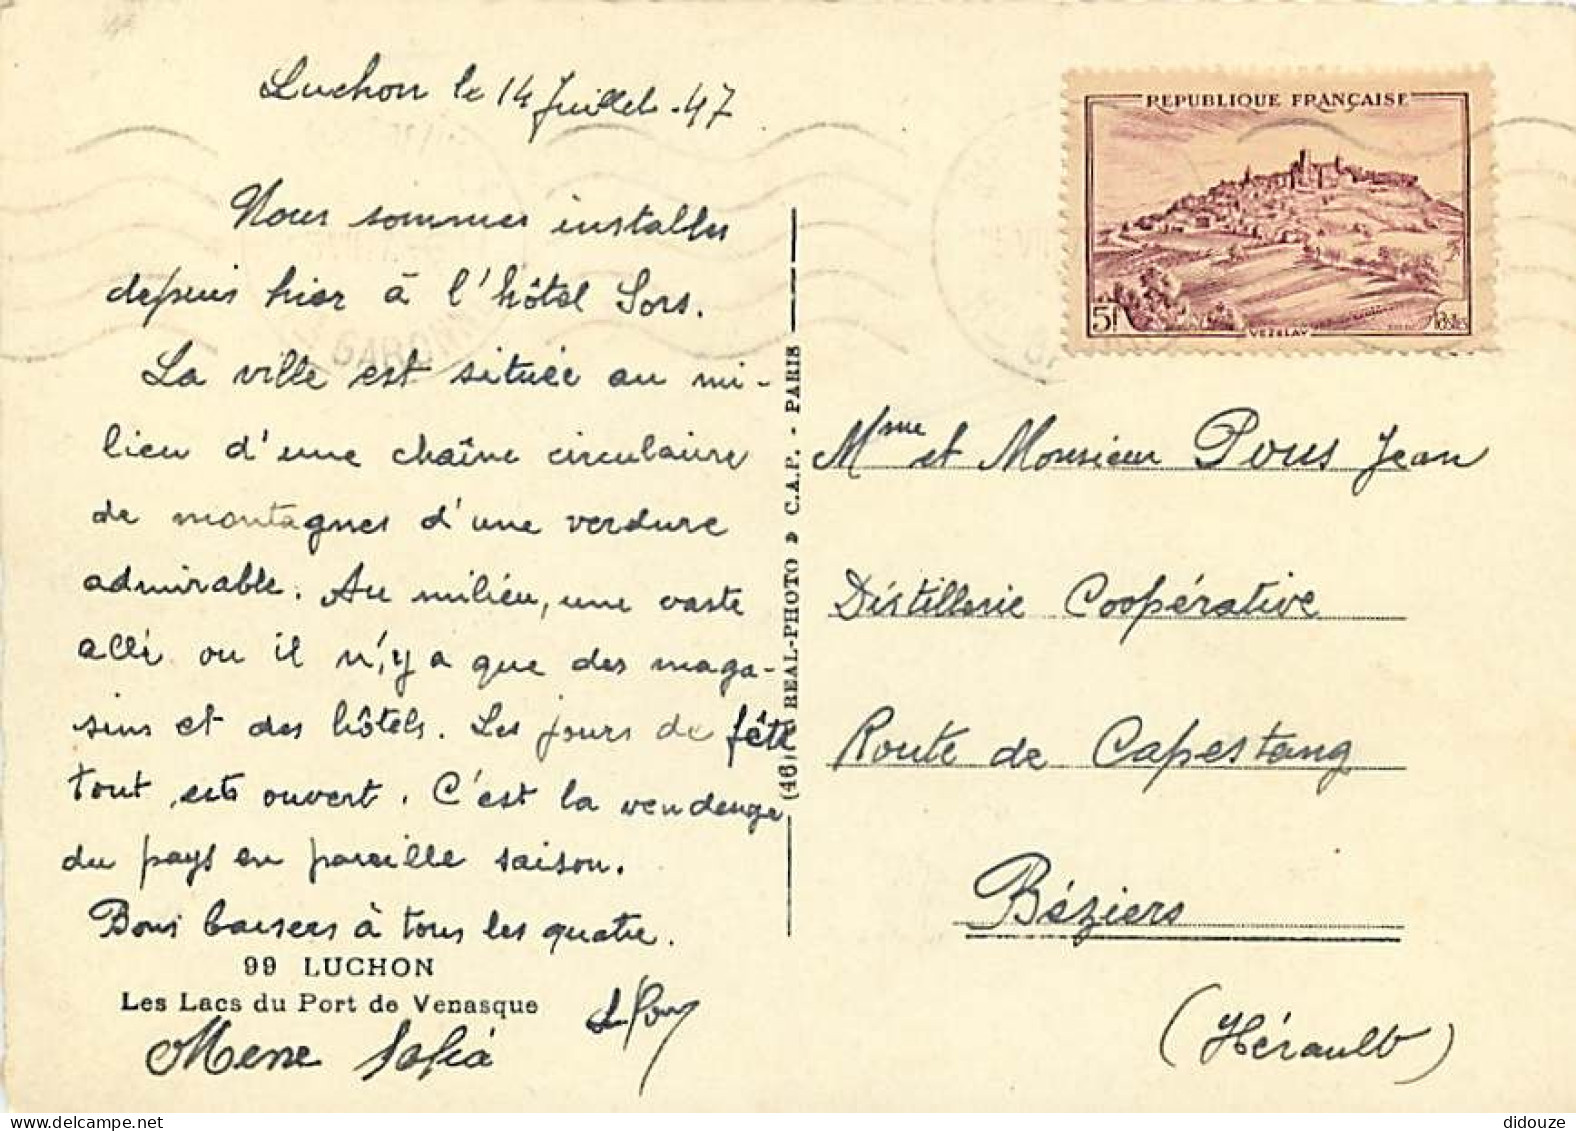 Luchon le 14 Juillet 47
Nous sommes installés
depuis hier à l'hôtel Sors.
La ville est située au mi-
lieu d'une chaîne circulaire
de montagnes d'une verdure
admirable. Au milieu, une vaste
allé ou il n'y a que des maga-
sins et des hôtels. Les jours de fête
tout est ouvert. C'est la vendenge
du pays en pareille saison.
Bons baisers à tous les quatre.
99 LUCHON
Les Lacs du Port de Venasque
(46) REAL-PHOTO C.A.P. - PARIS
REPUBLIQUE FRANÇAISE
5f VEZELAY Postes
GARONNE
Mme et Monsieur Pous Jean
Distillerie Coopérative
Route de Capestang
Béziers
(Hérault)
didouze